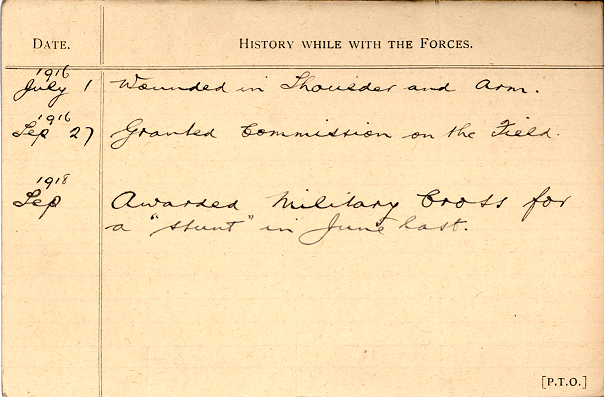 DATE. HISTORY WHILE WITH THE FORCES.
1916
July 1 Wounded in Shoulder and Arm.
1916
Sep 27 Granted Commission on the Field.
1918
Sep Awarded Military Cross for
a "stunt" in June last.
[P.T.O.]